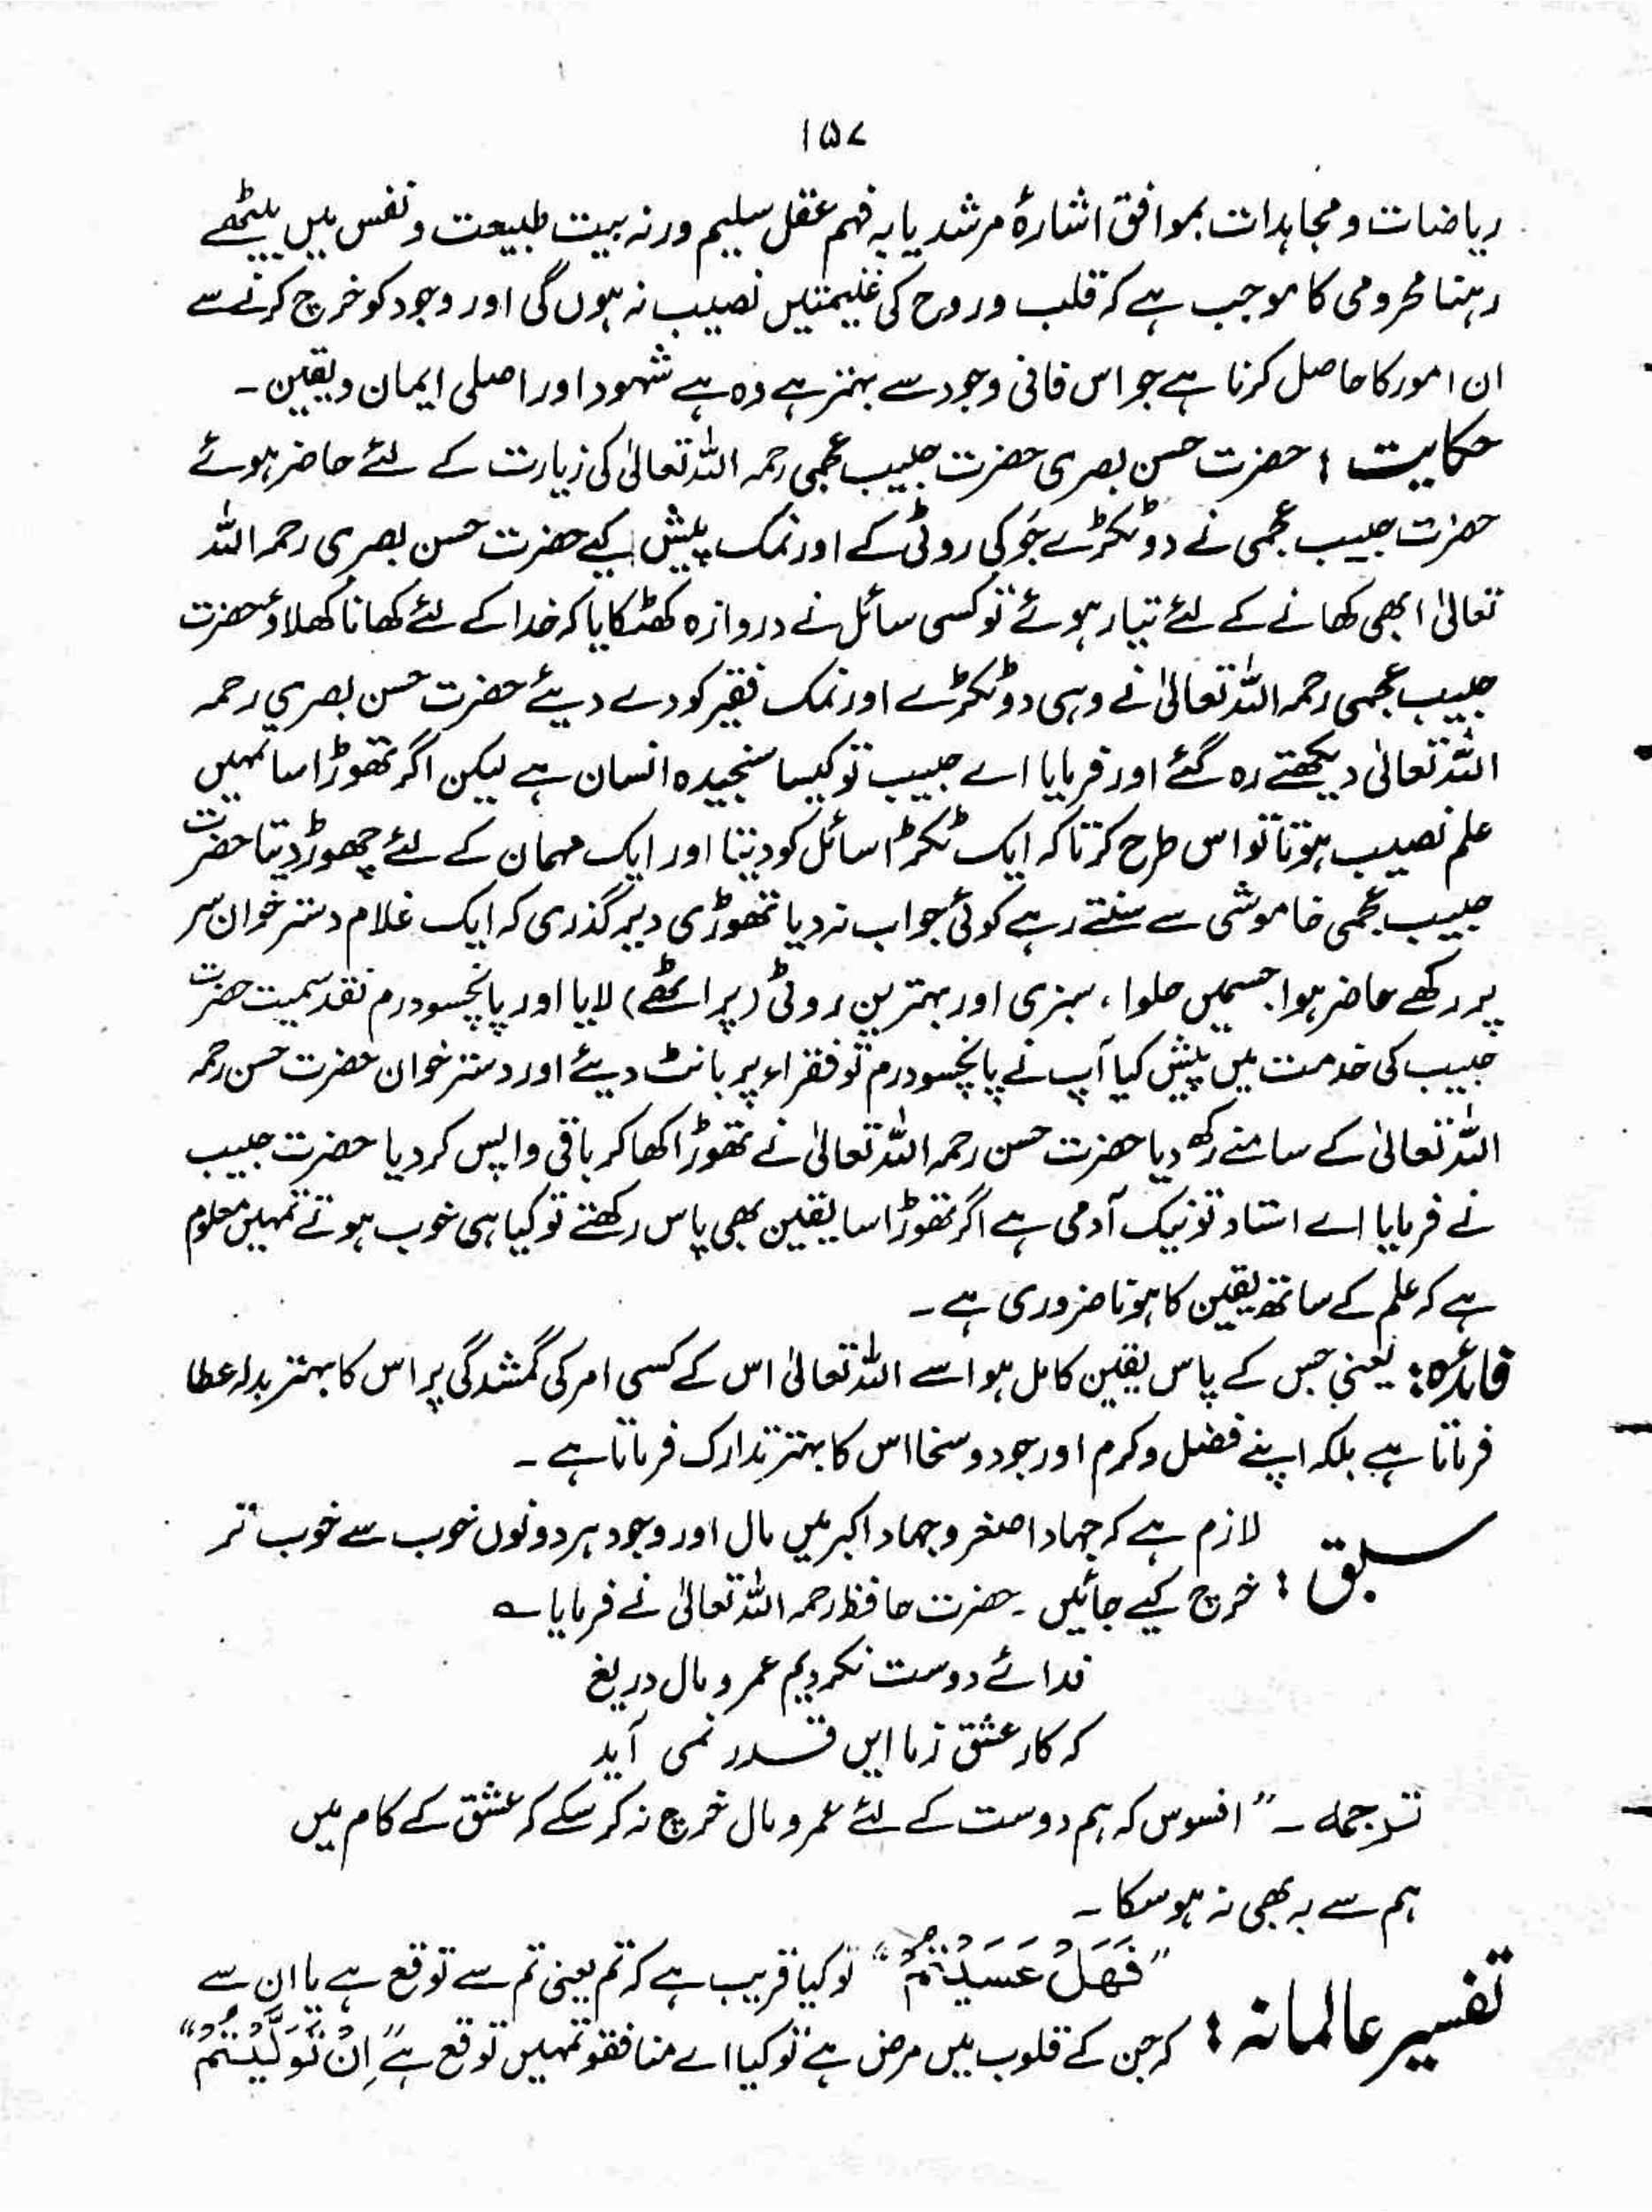 ۱۵۷
ریاضات و مجاہدات بموافق اشارۂ مرشد یا بہ فہم عقل سلیم ورنہ بیت طبیعت و نفس میں بیٹھے
رہنا محرومی کا موجب ہے کہ قلب و روح کی غنیمتیں نصیب نہ ہوں گی اور وجود کو خرچ کرنے سے
ان امور کا حاصل کرنا ہے جو اس فانی وجود سے بہتر ہے وہ ہے شہود اور اصلی ایمان و یقین۔
حکایت : حضرت حسن بصری حضرت حبیب عجمی رحمہ اللہ تعالیٰ کی زیارت کے لئے حاضر ہوئے
حضرت حبیب عجمی نے دو ٹکڑے جَو کی روٹی کے اور نمک پیش کیے حضرت حسن بصری رحمہ اللہ
تعالیٰ ابھی کھانے کے لئے تیار ہوئے تو کسی سائل نے دروازہ کھٹکایا کہ خدا کے لئے کھانا کھلاؤ حضرت
حبیب عجمی رحمہ اللہ تعالیٰ نے وہی دو ٹکڑے اور نمک فقیر کو دے دیئے حضرت حسن بصری رحمہ
اللہ تعالیٰ دیکھتے رہ گئے اور فرمایا اے حبیب تو کیسا سنجیدہ انسان ہے لیکن اگر تھوڑا سا تمہیں
علم نصیب ہوتا تو اس طرح کرتا کہ ایک ٹکڑا سائل کو دیتا اور ایک مہمان کے لئے چھوڑ دیتا حضرت
حبیب عجمی خاموشی سے سنتے رہے کوئی جواب نہ دیا تھوڑی دیر گذری کہ ایک غلام دسترخوان سر
پر رکھے حاضر ہوا جسمیں حلوا ، سبزی اور بہترین روٹی (پراٹھے) لایا اور پانچسو درم نقد سمیت حضرت
حبیب کی خدمت میں پیش کیا آپ نے پانچسو درم تو فقراء پر بانٹ دیئے اور دسترخوان حضرت حسن رحمہ
اللہ تعالیٰ کے سامنے رکھ دیا حضرت حسن رحمہ اللہ تعالیٰ نے تھوڑا کھا کر باقی واپس کر دیا حضرت حبیب
نے فرمایا اے استاد تو نیک آدمی ہے اگر تھوڑا سا یقین بھی پاس رکھتے تو کیا ہی خوب ہوتے تمہیں معلوم
ہے کہ علم کے ساتھ یقین کا ہونا ضروری ہے۔
فائدہ : یعنی جس کے پاس یقین کامل ہو اسے اللہ تعالیٰ اس کے کسی امر کی گمشدگی پر اس کا بہتر بدلہ عطا
فرماتا ہے بلکہ اپنے فضل و کرم اور جود و سخا اس کا بہتر تدارک فرماتا ہے۔
سبق : لازم ہے کہ جہاد اصغر و جہاد اکبر میں مال اور وجود ہر دونوں خوب سے خوب تر
خرچ کیے جائیں۔ حضرت حافظ رحمہ اللہ تعالیٰ نے فرمایا ؎
فدائے دوست نکردیم عمر و مال دریغ
کہ کار عشق زما ایں قدر نمی آید
ترجمہ۔ ”افسوس کہ ہم دوست کے لئے عمر و مال خرچ نہ کر سکے کہ عشق کے کام میں
ہم سے یہ بھی نہ ہو سکا۔
تفسیر عالمانہ : ”فَهَلْ عَسَيْتُمْ“ تو کیا قریب ہے کہ تم یعنی تم سے توقع ہے یا ان سے
کہ جن کے قلوب میں مرض ہے تو کیا اے منافقو تمہیں توقع ہے ”اِنْ تَوَلَّيْتُمْ“